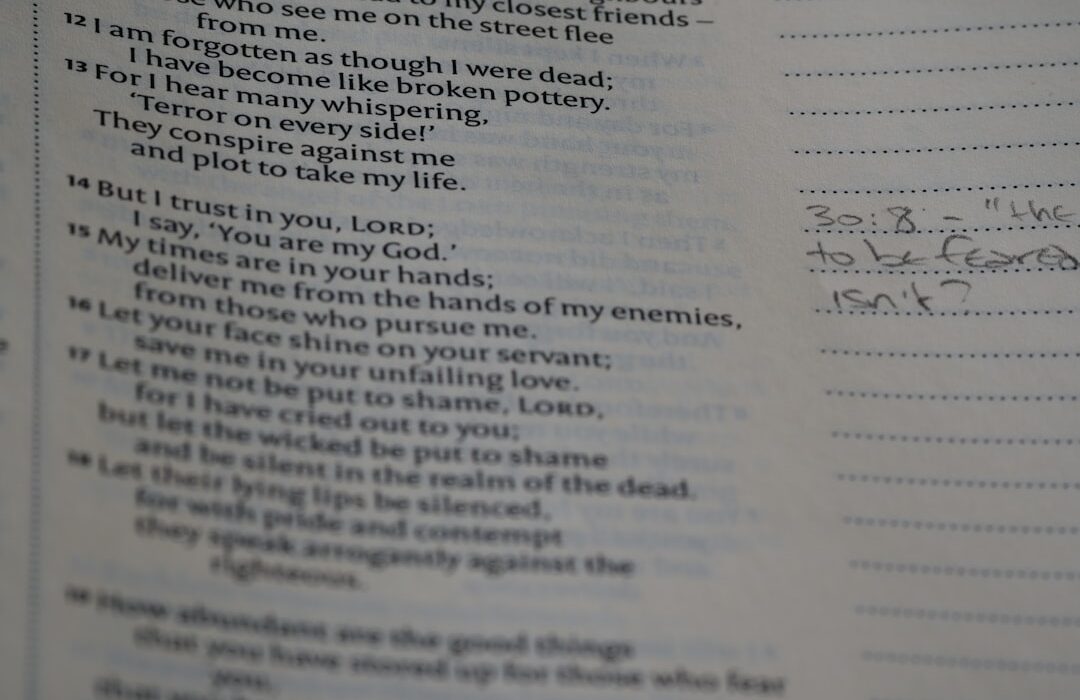 my closest friends –
who see me on the street flee
from me.
12 I am forgotten as though I were dead;
I have become like broken pottery.
13 For I hear many whispering,
‘Terror on every side!’
They conspire against me
and plot to take my life.
14 But I trust in you, LORD;
I say, ‘You are my God.’
15 My times are in your hands;
deliver me from the hands of my enemies,
from those who pursue me.
16 Let your face shine on your servant;
save me in your unfailing love.
17 Let me not be put to shame, LORD,
for I have cried out to you;
but let the wicked be put to shame
and be silent in the realm of the dead.
18 Let their lying lips be silenced,
for with pride and contempt
they speak arrogantly against the
righteous.
19 How abundant are the good things
that you have stored up for those who fear
you,
30:8 – "the
to be feared
isn't?